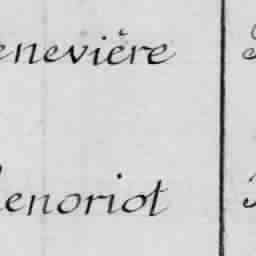 enevière
enoriot